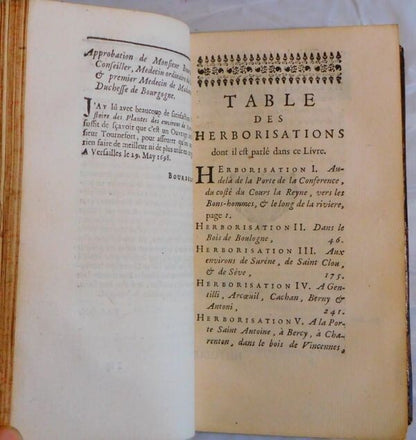 Approbation de Monsieur
Conseiller, Medecin ordinaire
& premier Medecin de
Duchesse de Bourgogne.
J'AY lû avec beaucoup de
stoire des Plantes des environs de
suffit de sçavoir que c'est un
sieur Tournefort, pour assurer qu'on
rien faire de meilleur ni de plus
A Versailles le 29. May 1698.
TABLE
DES
HERBORISATIONS
dont il est parlé dans ce Livre.
HERBORISATION I. Au-
delà de la Porte de la Conference,
du costé du Cours la Reyne, vers les
Bons-hommes, & le long de la riviere,
page 1.
HERBORISATION II. Dans le
Bois de Boulogne, 46.
HERBORISATION III. Aux
environs de Surêne, de Saint Clou,
& de Séve, 175.
HERBORISATION IV. A Gen-
tilli, Arcœuil, Cachan, Berny &
Antoni, 241.
HERBORISATION V. A la Por-
te Saint Antoine, à Bercy, à Cha-
renton, dans le bois de Vincennes,